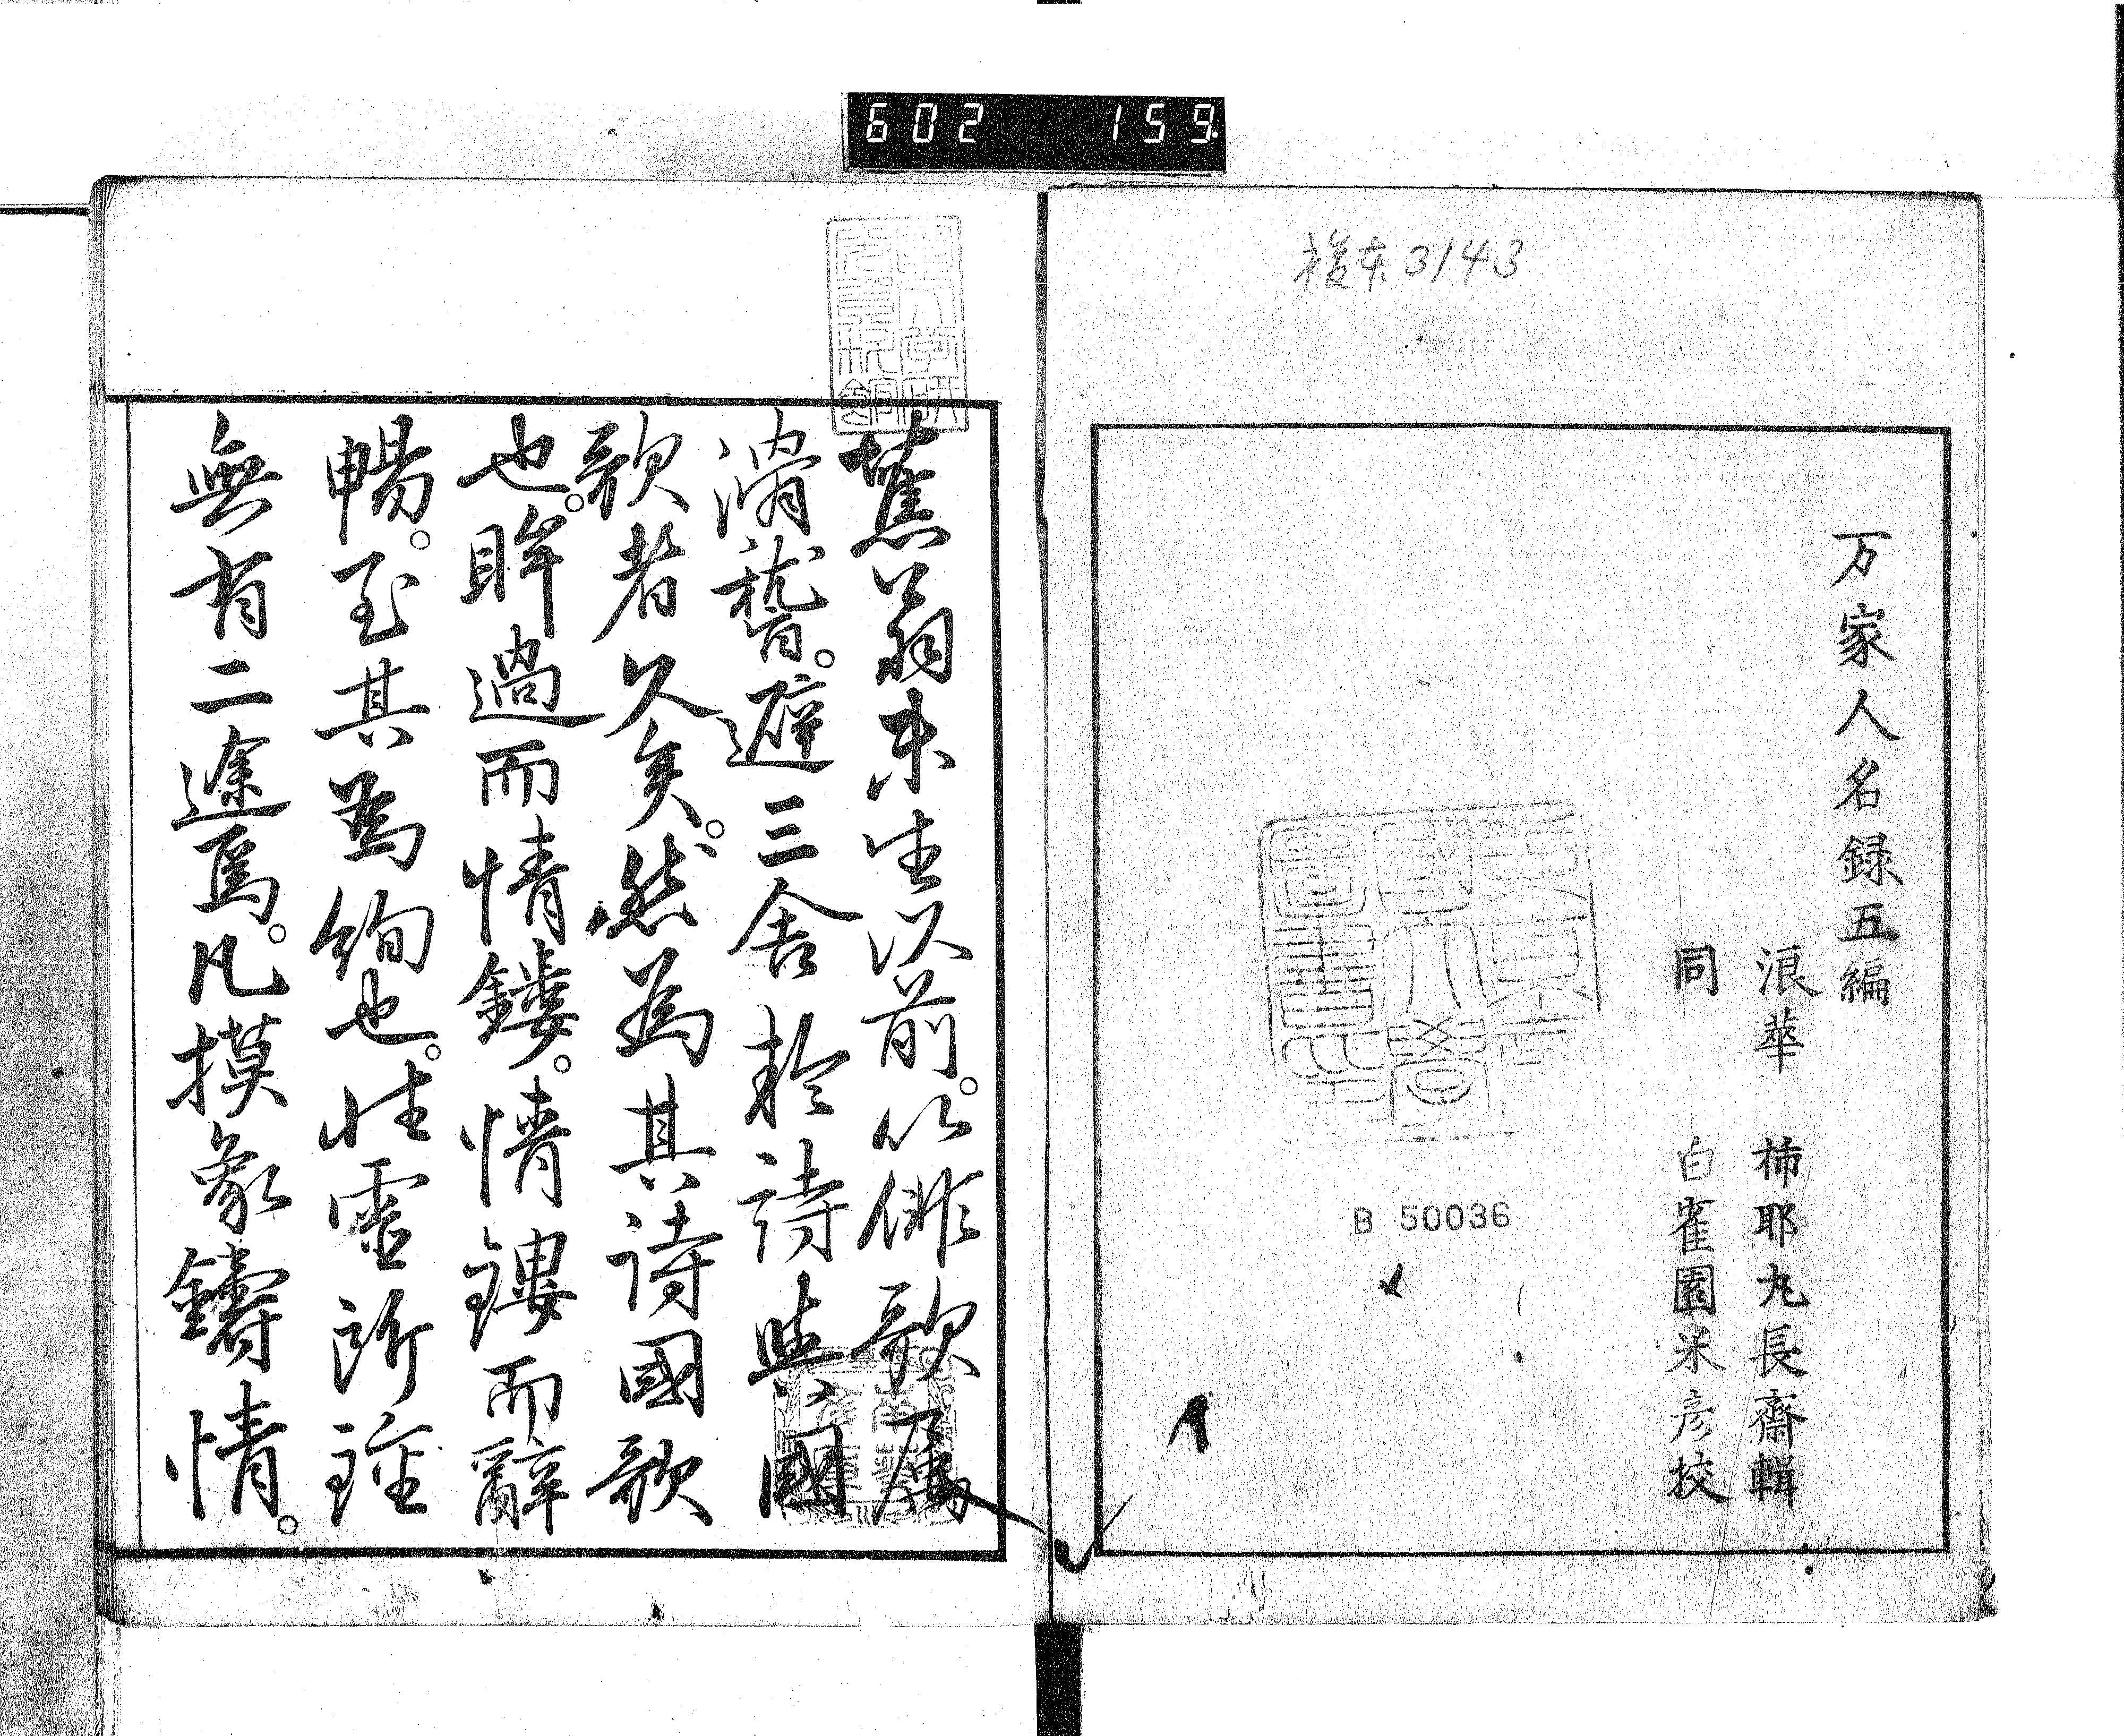 602 159
複本3143
万家人名録五編
浪華 柿耶丸長齋輯
同 白雀園米彦挍
B 50036
蕉翁未生以前。以俳歌属
滑稽。避三舎於詩與國
歌者久矣。然為其詩國歌
也。眸過而情鏤。情鏤而辭
暢。至其為絢也。性霊所鍾
無有二途焉。凡摸象鑄情。